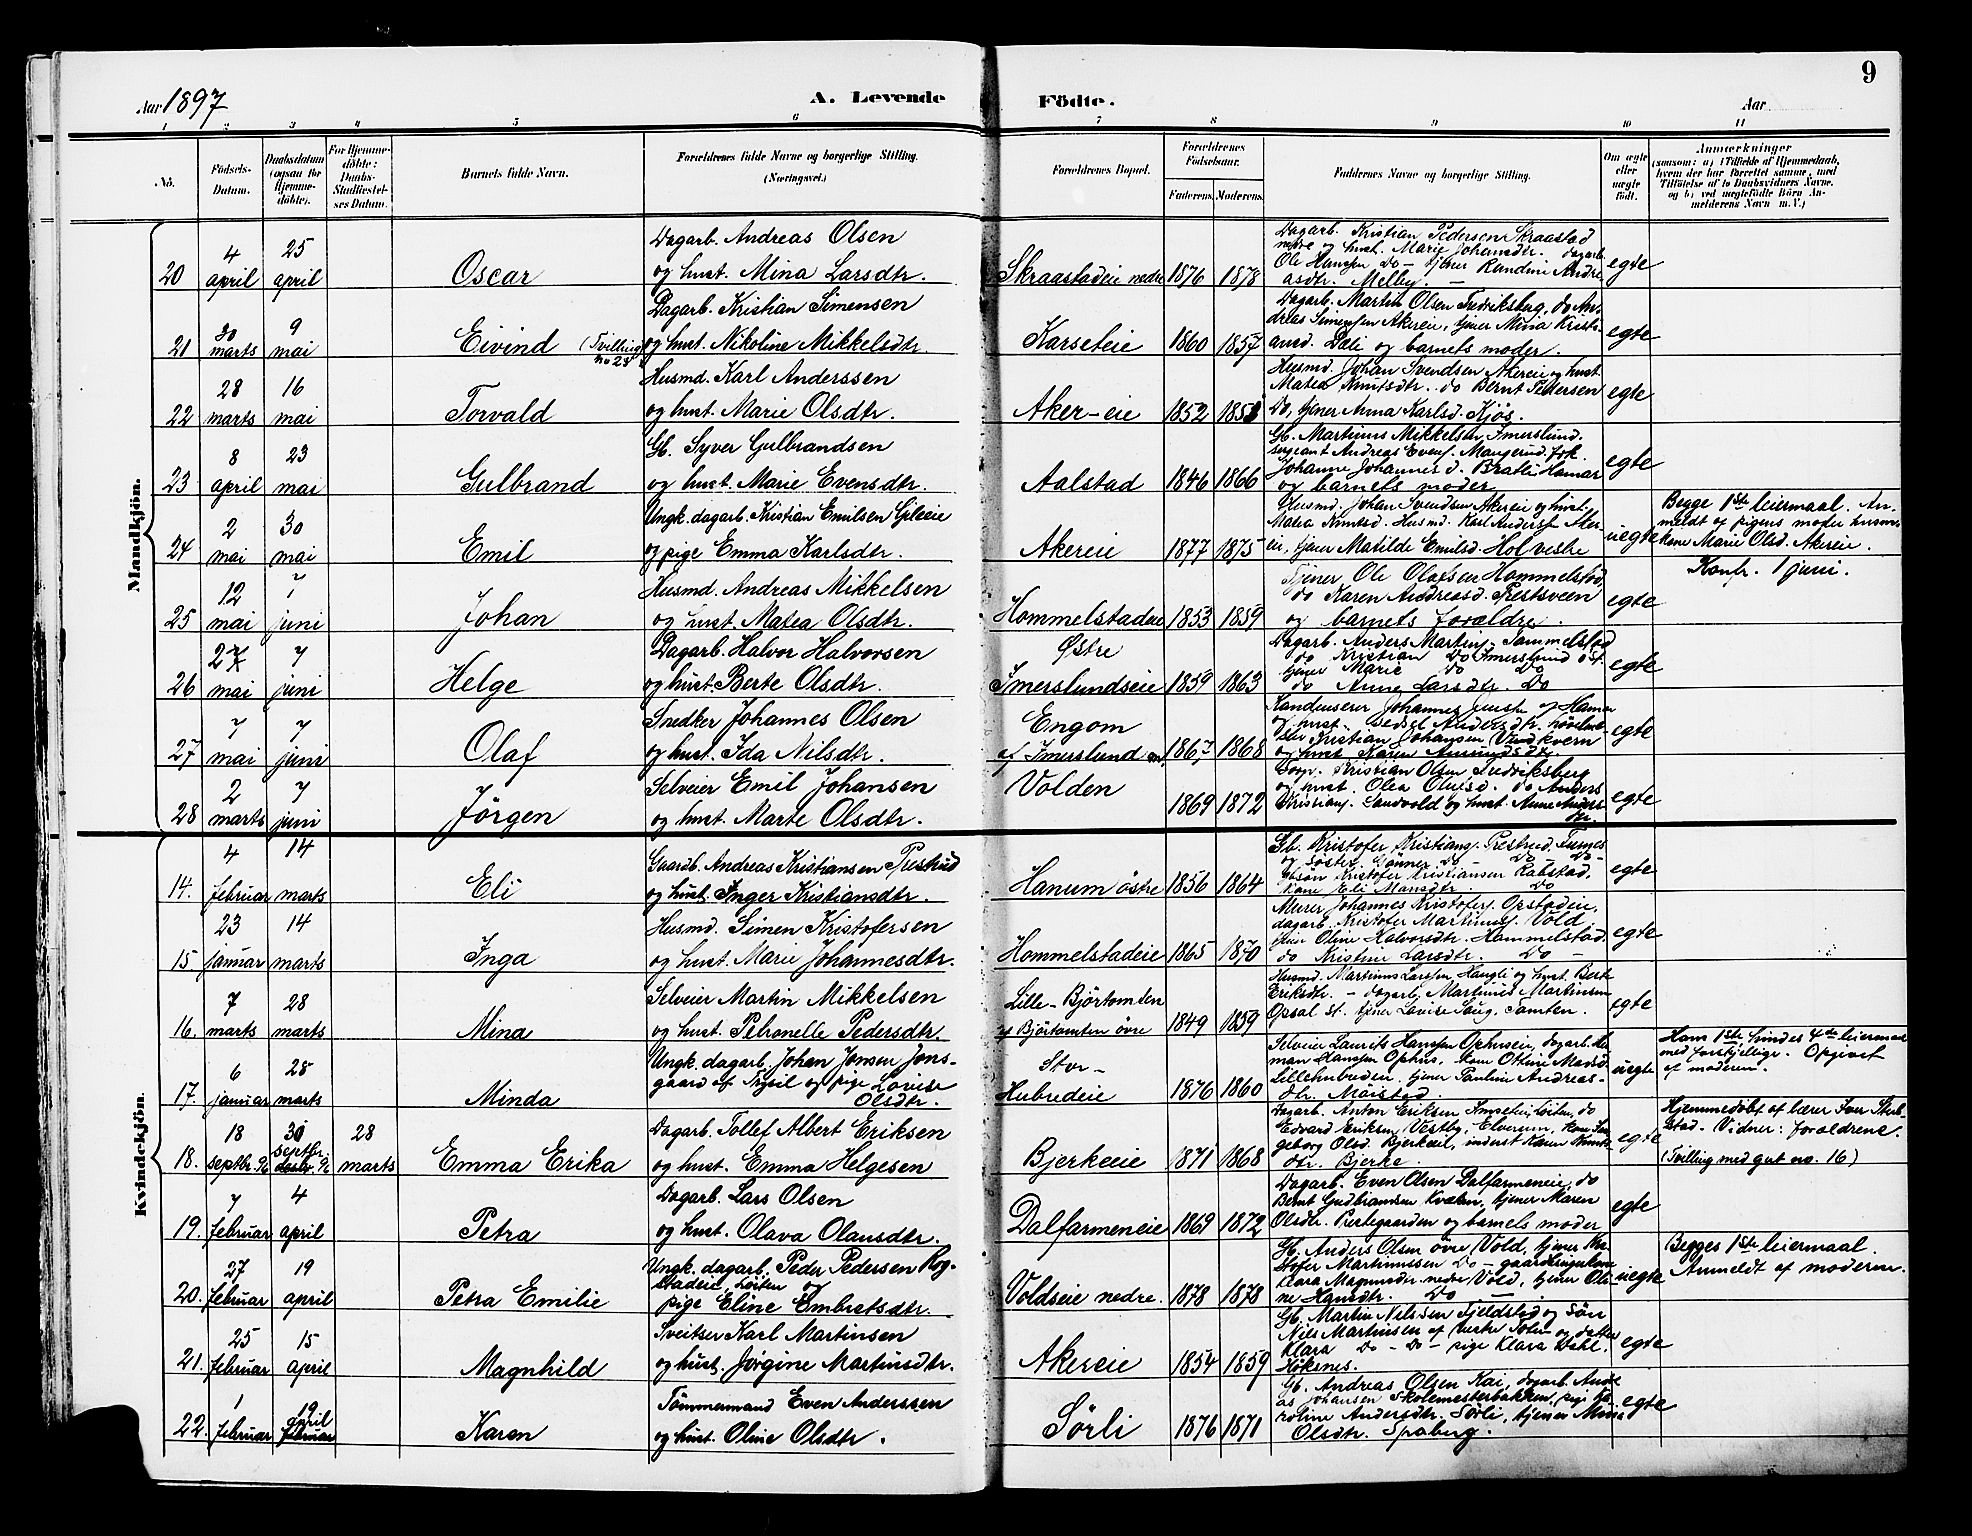 Aar 1897
A. Levende Födte.
Aar
9
1 2 3 4 5 6 7 8 9 10 11
No.
Födsels-Datum.
Daabsdatum (ogsaa for Hjemme-döbte).
For Hjemme-döbte: Daabs-Stadfæstel-ses Datum.
Barnets fulde Navn.
Forældrenes fulde Navne og borgerlige Stilling. (Næringsvei.)
Forældrenes Bopæl.
Forældrenes Födselsaar.
Faderens. Moderens.
Faddernes Navne og borgerlige Stilling.
Om ægte eller uægte födt.
Anmærkninger
(saasom: a) i Tilfælde af Hjemmedaab, hvem der har forrettet samme, med Tilföielse af to Daabsvidners Navne, og b) ved uægtefödte Börn An-melderens Navn m. V.)
Mandkjön.
20 4 april 25 april Oscar
Dagarb. Andreas Olsen
og hust. Mina Larsdtr.
Skraastadeie nedre 1876 1878
Dagarb. Kristian Pedersen Skraastad
nedre og hust. Marie Johansdtr. dagarb.
Ole Hansen Do – tjener Randine Andre
asdtr. Melby. –
egte
21 30 marts 9 mai Eivind (Tvilling no 28
Dagarb. Kristian Simensen
og hust. Nikoline Mikkelsdtr.
Karseteie 1860 1857
Dagarb. Martin Olsen Fredriksberg, do An-
dreas Simensen Akereie, tjener Mina Kristi-
ansd. Dæli og barnets moder.
egte
22 28 marts 16 mai Torvald
Husmd. Karl Anderssen
og hust. Marie Olsdtr.
Aker-eie 1852
Husmd. Johan Svendsen Akereie og hust.
Matea Knutsdtr. do Bernt Pedersen
Do, tjener Anna Karlsd. Kjøs.
egte
23 8 april 23 mai Gulbrand
Gb. Syver Gulbrandsen
og hust. Marie Evensdtr.
Aalstad 1846 1866
Gb. Martinus Mikkelsen Imerslund.
sergeant Andreas Evens. Mangerud, frk.
Johanne Johannesd. Bratli Hamar
og barnets moder
egte
24 2 mai 30 mai Emil
Ungk. dagarb. Kristian Emilsen
og pige Emma Karlsdtr.
Akereie 1877 1875
Husmd. Johan Svendsen Akereie og hust.
Matea Knutsd. Husmd. Karl Anders. Aker-
eie, tjener Matilde Emilsd. Hol vestre
uegte
Begge 1ste leiermaal. An-
meldt og pigens moder husm.
kone Marie Olsd. Akereie.
Konfr. 1 juni.
25 12 mai 7 juni Johan
Husmd. Andreas Mikkelsen
og hust. Matea Olsdtr.
Hommelstadeie 1853 1859
Tjener Ole Olafsen Hommelstad,
do Karen Andreasd. Prestsveen
og barnets forældre.
egte
26 27 mai 7 juni Helge
Dagarb. Halvor Halvorsen
og hust. Berte Olsdtr.
Østre
Imerslundseie 1859 1863
Dagarb. Anders Martins. Sammelstad
do Kristian Do Imerslund øst.
tjener Marie Do Do
do Anne Larsdtr. Do
egte
27 7 mai 7 juni Olaf
Snedker Johannes Olsen
og hust. Ida Nilsdtr.
Engom
af Imerslund 1867 1868
Johannes af Hamar
og hust.
Kristian Johansen Vindkvern
og hust. Karen Amundsdtr.
egte
28 2 marts 7 juni Jörgen
Selveier Emil Johansen
og hust. Marte Olsdtr.
Volden 1869 1872
Kristian Olsen Fredriksberg
og hust. Olea do Anders
Kristians. Sandvold og hust. Anne Anders
dtr.
egte
Kvindekjön.
14. 4 februar 14 marts Eli
Gaardb. Andreas Kristiansen Prestrud
og hust. Inger Kristiansdtr.
Hanum östre 1856 1864
Gb. Kristofer Kristians. Prestrud, Furnes
og söster Gunner Do – Do Do –
Kristofer Kristiansen Rabstad,
kone Eli Monsdtr. Do
egte
15. 23 januar 14 marts Inga
Husmd. Simen Kristofersen
og hust. Marie Johannesdtr.
Hommelstadeie 1865 1870
Murer Johannes Kristofers. Opstadeie,
dagarb. Kristofer Martinus. Vold
tjener Oline Halvorsdtr. Hommelstad.
do Kristine Larsdtr. Do –
egte
16. 7 marts 28 marts Mina
Selveier Martin Mikkelsen
og hust. Petronelle Pedersdtr.
Lille-Björtomden
af Björtomten övre 1849 1859
Husmd. Martinus Larssen Haugli og hust. Berte
Eriksdtr. – dagarb. Martinus Martinsen
Opsal st. tjener Lovise Tomten.
egte
17. 6 januar 28 marts Minda
Ungk. dagarb. Johan Jonsen Jons-
gaard af Trysil og pige Lovise
Olsdtr.
Stor-
Hubredeie 1876 1860
Selveier Laurits Hansen Ophuseie, dagarb. He
man Hansen Ophus, kone Otline Madsd.
Lillehubreden, tjener Pauline Andreas-
dtr. Möistad.
uegte
Hans 1ste hindes 4de leiermaal
med forskjellige. Opgivet
af moderen.
18. 18 septbr. 96 30 septbr. 96 28 marts Emma Erika
Dagarb. Tollef Albert Eriksen
og hust. Emma Helgesen
Bjerkeeie 1871 1868
Dagarb. Anton Eriksen Löiten, do
Edvard Eriksen Vestby, Elverum, kone In-
geborg Olsd. Bjerkeeie, inderst Karen Knuts
dtr. Bjerke.
egte
Hjemmedöbt af lærer Iver
stad. Vidner: forældrene.
(Tvilling med gut no. 16)
19. 7 februar 4 april Petra
Dagarb. Lars Olsen
og hust. Olava Olausdtr.
Dalfarmeneie 1869 1872
Dagarb. Even Olsen Dalfarmeneie, do
Bernt Gudbrandsen Kvæken, tjener Maren
Olsdtr. Prestegaarden og barnets moder
egte
20. 27 februar 19 april Petra Emilie
Ungk. dagarb. Peder Pedersen Rog-
stadeie, Löiten og
pige Eline Embretsdtr.
Voldseie nedre. 1878 1878
Gb. Anders Olsen övre Vold, tjener Kri
stofer Martinussen Do – gaardbrugerkone
Klara Magnusdtr. nedre Vold, tjener Oli
ne Hansdtr. Do –
uegte
Begges 1ste leiermaal.
Anmeldt af moderen.
21. 25 februar 15 april Magnhild
Sveitser Karl Martinsen
og hust. Jörgine Martinsdtr.
Akereie 1854 1859
Gb. Martin Nilssen Fjeldstad og sön
Nils Martinsen af Vestre Toten og datter
Klara Do – Do – pige Klara Dahl,
Höksnes.
egte
22. 1 februar 19 april Karen
Tömmermand Even Anderssen
og hust. Oline Olsdtr.
Sörli 1876 1871
Gb. Andreas Olsen Kai, dagarb. Andre
as Johansen Skolemesterbakken, pige Ka-
roline Andersdtr. Sörli, tjener Mina
Olsdtr. Spaberg.
egte